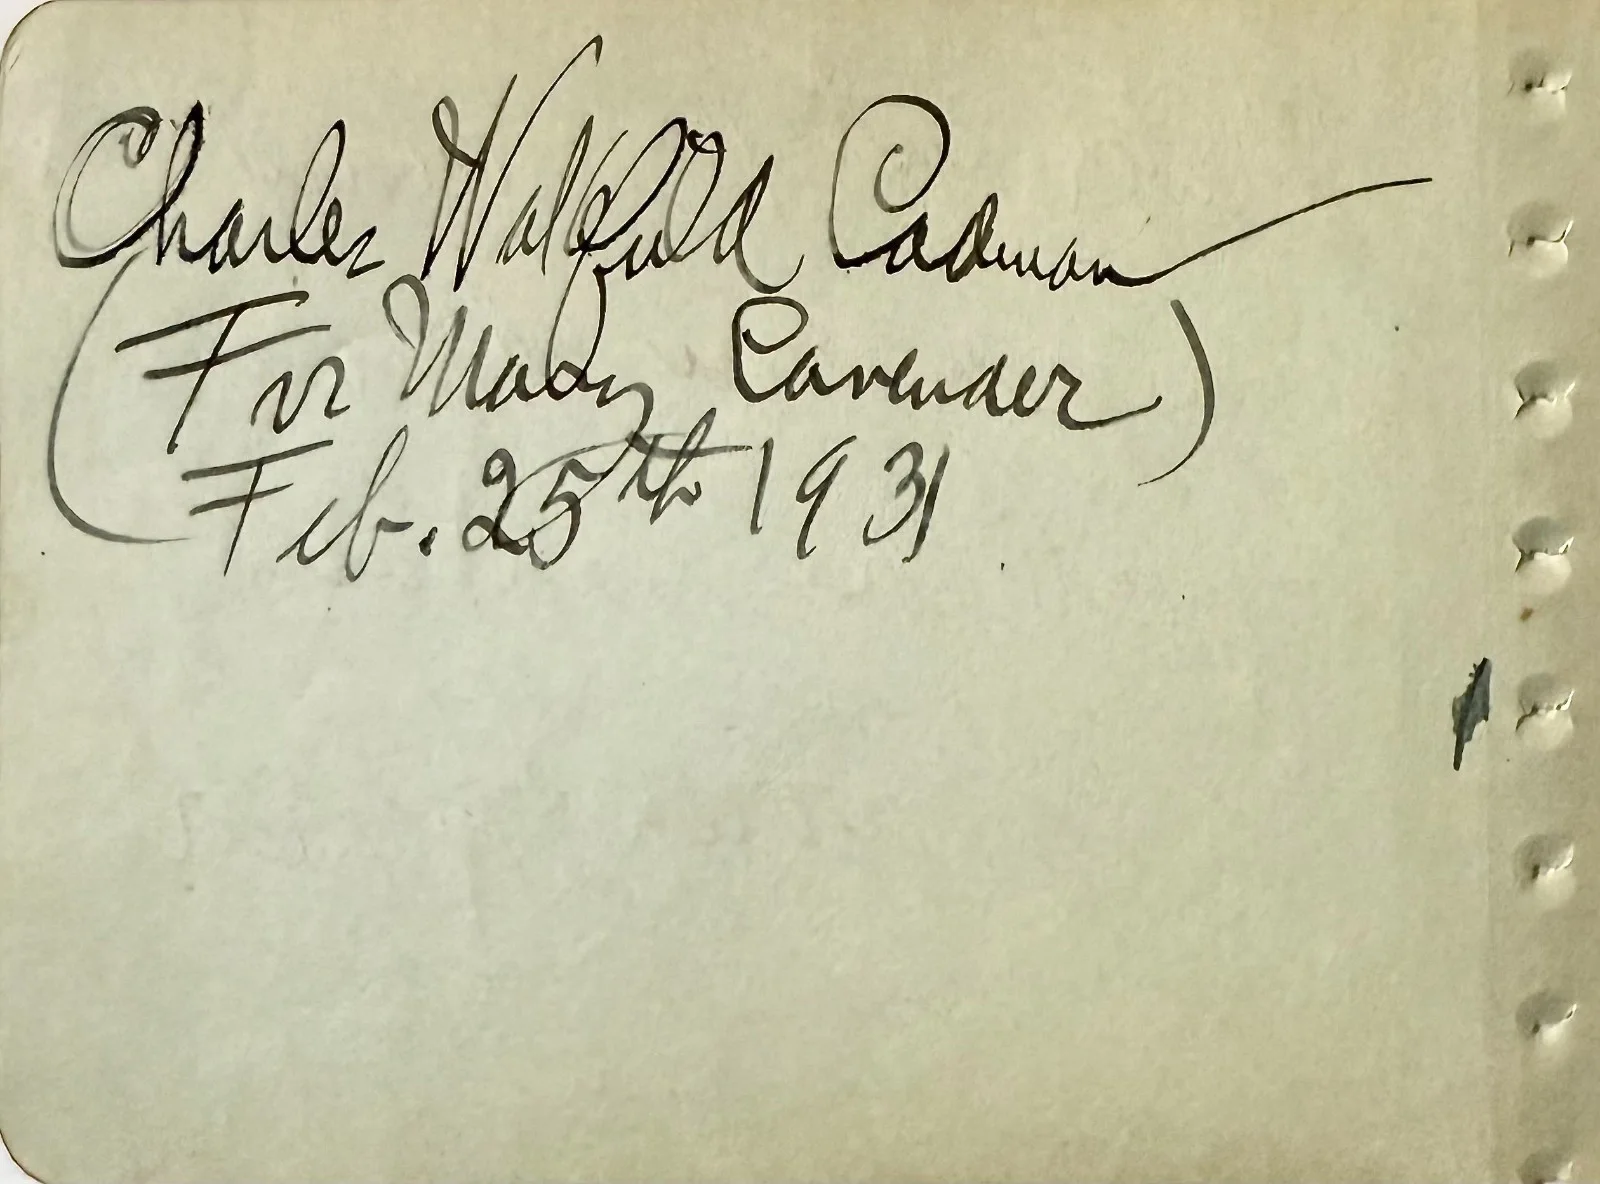 Charles Wakefield Cadman
(For Mary Cavender)
Feb. 25th 1931